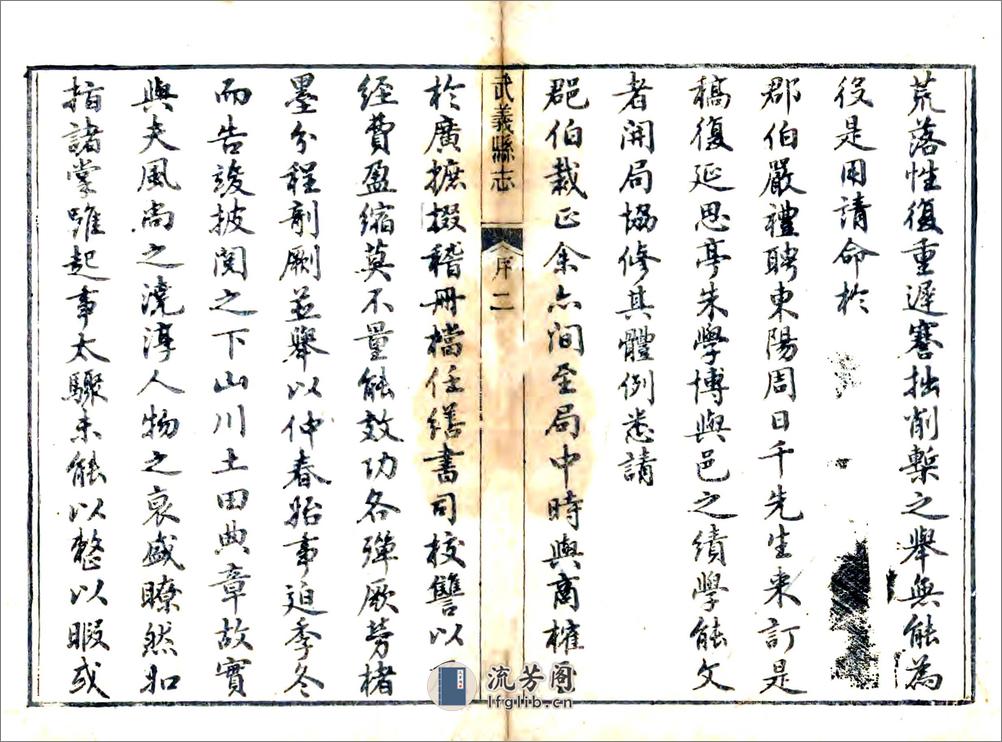 荒落性復重遲謇拙削槧之舉無能為
役是用請命於
郡伯嚴禮聘東陽周日千先生来訂是
稿復延思亭朱學博與邑之績學能文
者開局協修其體例悉請
郡伯裁正余亦间至局中時與商榷
武義縣志
序二
於廣摭掇稽册檔任繕書司校讐以
經費盈缩莫不量能效功各殫厥勞楮
墨分程剞劂並舉以仲春始事迫季冬
而告竣披閱之下山川土田典章故實
與夫風尚之澆淳人物之衰盛瞭然如
指諸掌雖起事太驟未能以整以暇或
流芳阁
lfglib.cn